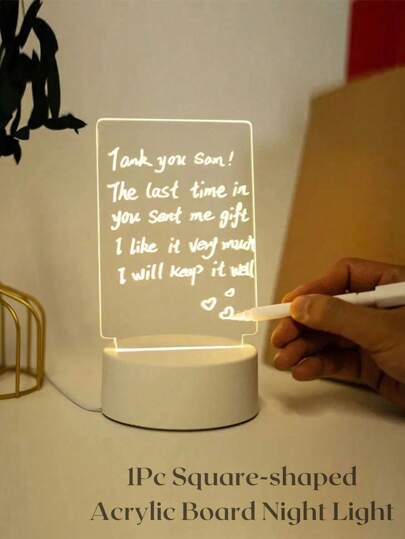 Tank you Sam!
The last time in
you sent me gift
I like it very much
I will keep it well
1Pc Square-shaped
Acrylic Board Night Light